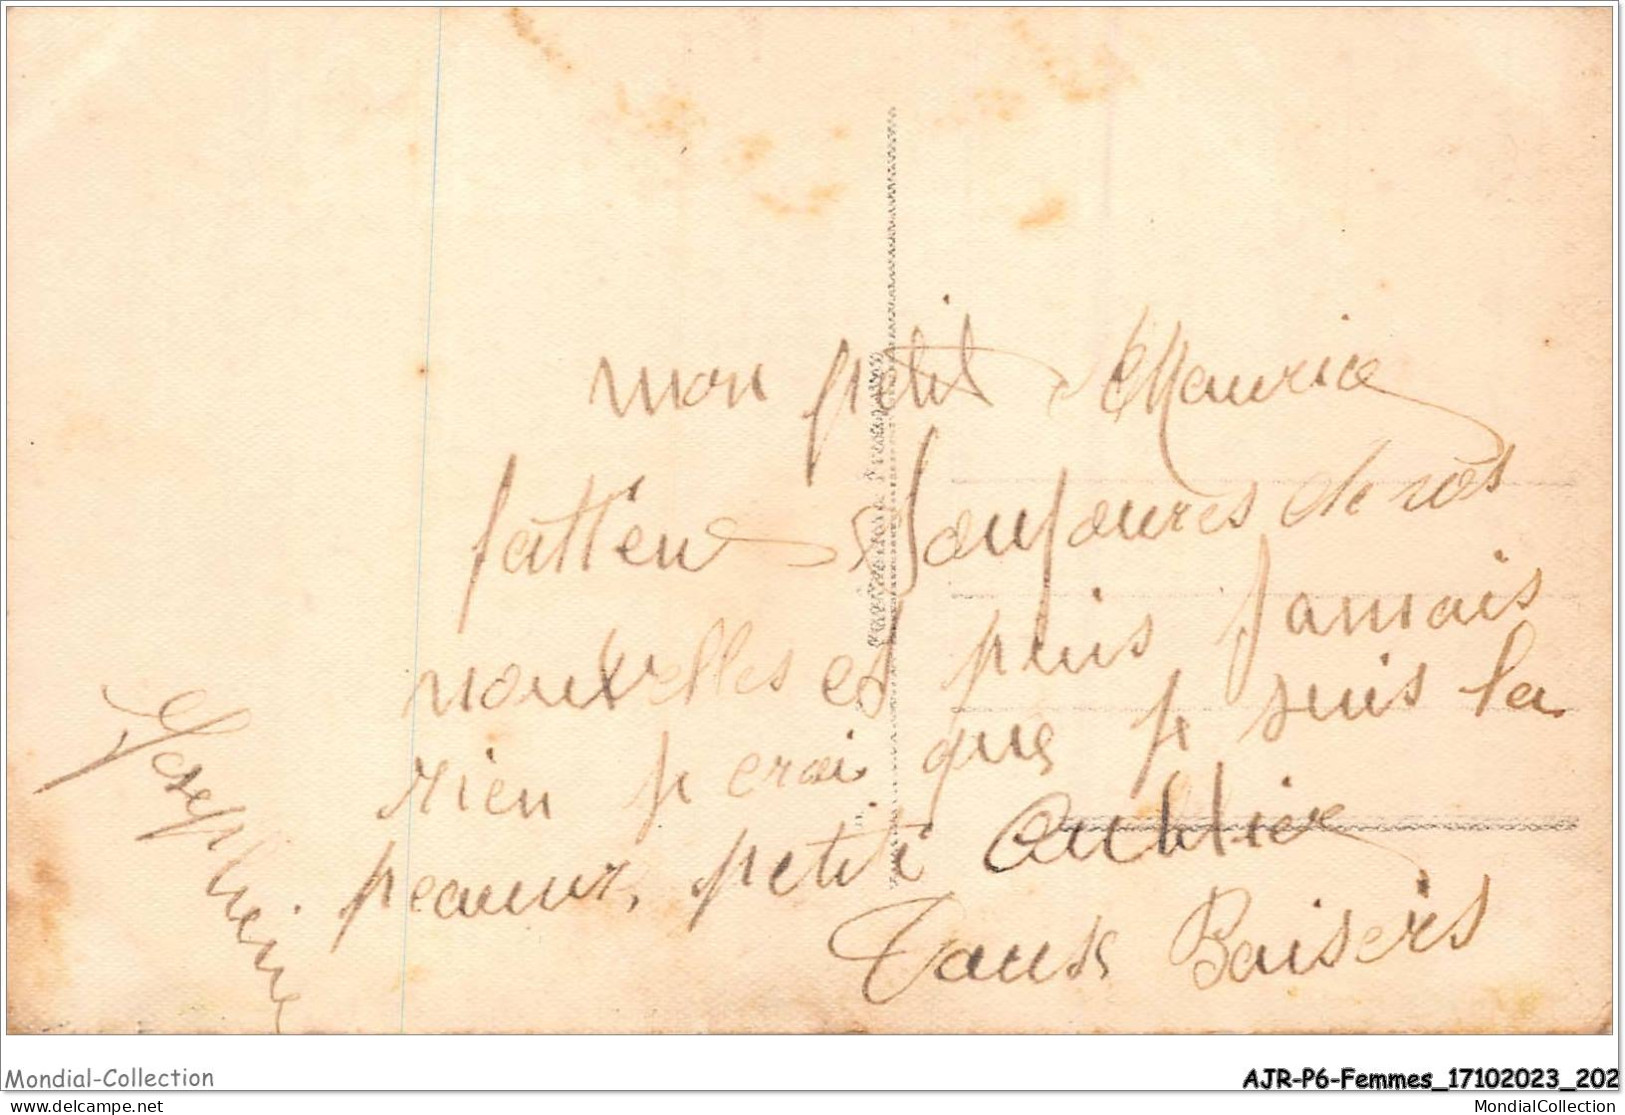 mon petit Maurice
j'atten toujoures de vos
nouvelles et puis jamais
rien je crai que je suis la
peauur, petit oublie
Tause Baisers
Josephine
Mondial-Collection
AJR-P6-Femmes_17102023_202
delcampe.net
MondialCollection